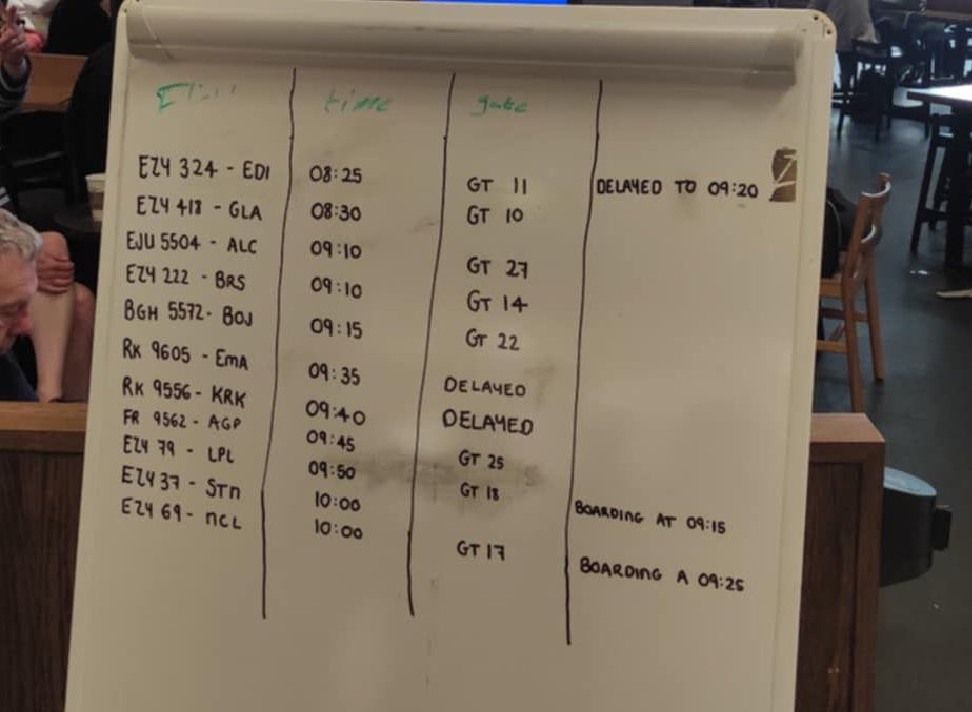 time gate
EZY 324 - EDI 08:25 GT 11 DELAYED TO 09:20
EZY 418 - GLA 08:30 GT 10
EJU 5504 - ALC 09:10 GT 27
EZY 222 - BRS 09:10 GT 14
BGH 5572 - BOJ 09:15 GT 22
RK 9605 - EMA 09:35 DELAYED
RK 9556 - KRK 09:40 DELAYED
FR 9562 - AGP 09:45 GT 25
EZY 79 - LPL 09:50 GT 18
EZY 37 - STN 10:00 BOARDING AT 09:15
EZY 69 - NCL 10:00 GT 17 BOARDING A 09:25